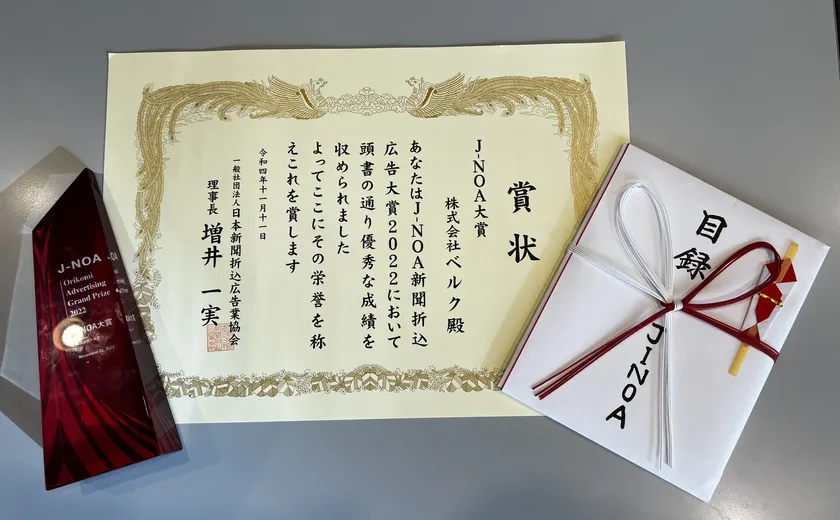 賞状
J-NOA大賞
株式会社ベルク殿
あなたはJ-NOA新聞折込
広告大賞2022において
頭書の通り優秀な成績を
収められました
よってここにその栄誉を称
えこれを賞します
令和四年十一月十一日
一般社団法人日本新聞折込広告業協会
理事長 増井一実
J-NOA
Orikomi
Advertising
Grand Prize
2022
NOA大賞
November 11, 2022
目録
JINOA